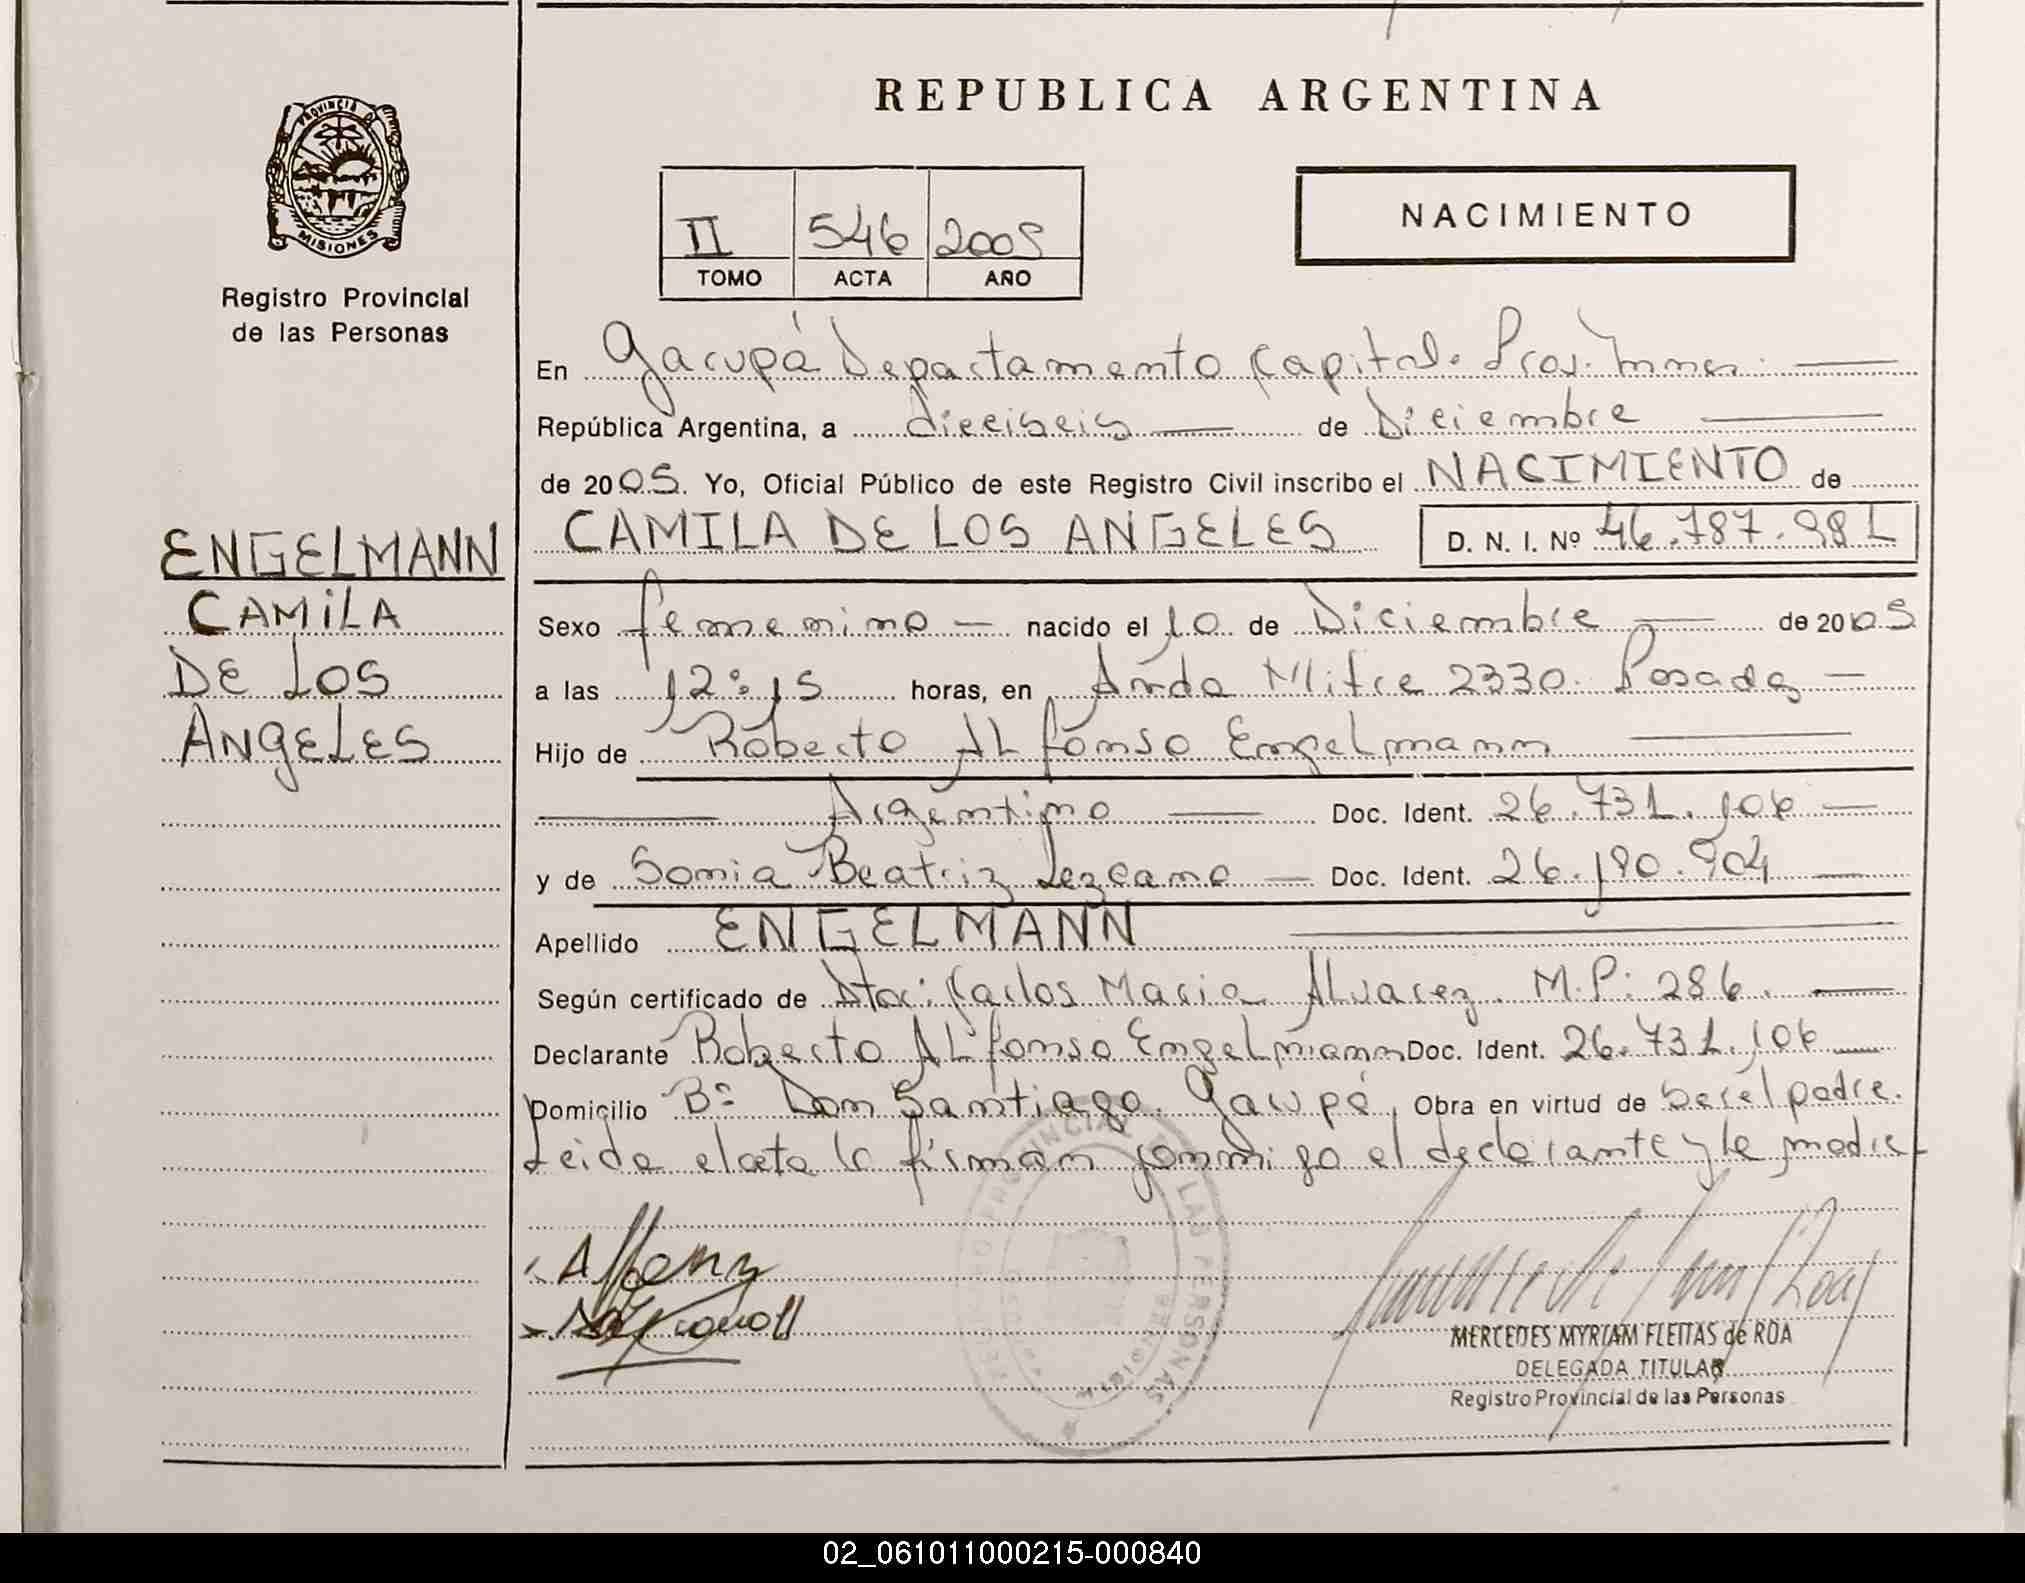 REPUBLICA ARGENTINA
PROVINCIA DE
MISIONES
Registro Provincial
de las Personas
II 546 2005
TOMO ACTA AÑO
NACIMIENTO
En Garupá Departamento Capital. Prov. Mnes
República Argentina, a dieciseis de Diciembre
de 2005. Yo, Oficial Público de este Registro Civil inscribo el NACIMIENTO de
CAMILA DE LOS ANGELES D. N. I. Nº 46.787.981
ENGELMANN
CAMILA
DE LOS
ANGELES
Sexo femenino nacido el 10 de Diciembre de 2005
a las 12:15 horas, en Avda Mitre 2330. Posadas
Hijo de Roberto Alfonso Engelmann
Argentino Doc. Ident. 26.731.106
y de Sonia Beatriz Lezcano Doc. Ident. 26.190.904
Apellido ENGELMANN
Según certificado de Carlos Maria Alvarez. M.P: 286.
Declarante Roberto Alfonso Engelmann Doc. Ident. 26.731.106
Domicilio Bº Don Santiago. Garupá, Obra en virtud de ser el padre.
Leida el acta la firman conmigo el declarante y la madre
MERCEDES MYRIAM FLEITAS de ROA
DELEGADA TITULAR
Registro Provincial de las Personas
02_061011000215-000840